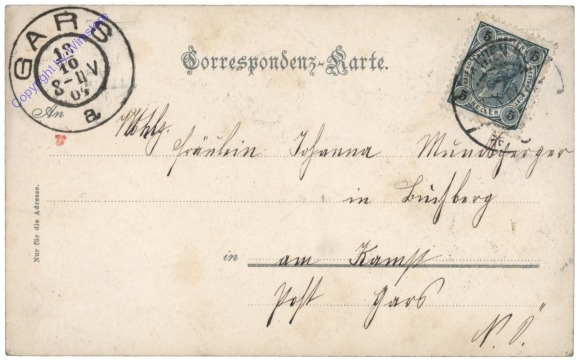 GARS
18
10
8-11V
04
a
Copyright by Winstore
Correspondenz-Karte.
WIEN
5 5
5 5
An
Wohlg.
Fräulein Johanna Mundsperger
in Buchberg
in am Kamp
Post Gars
N. Ö.
Nur für die Adresse.